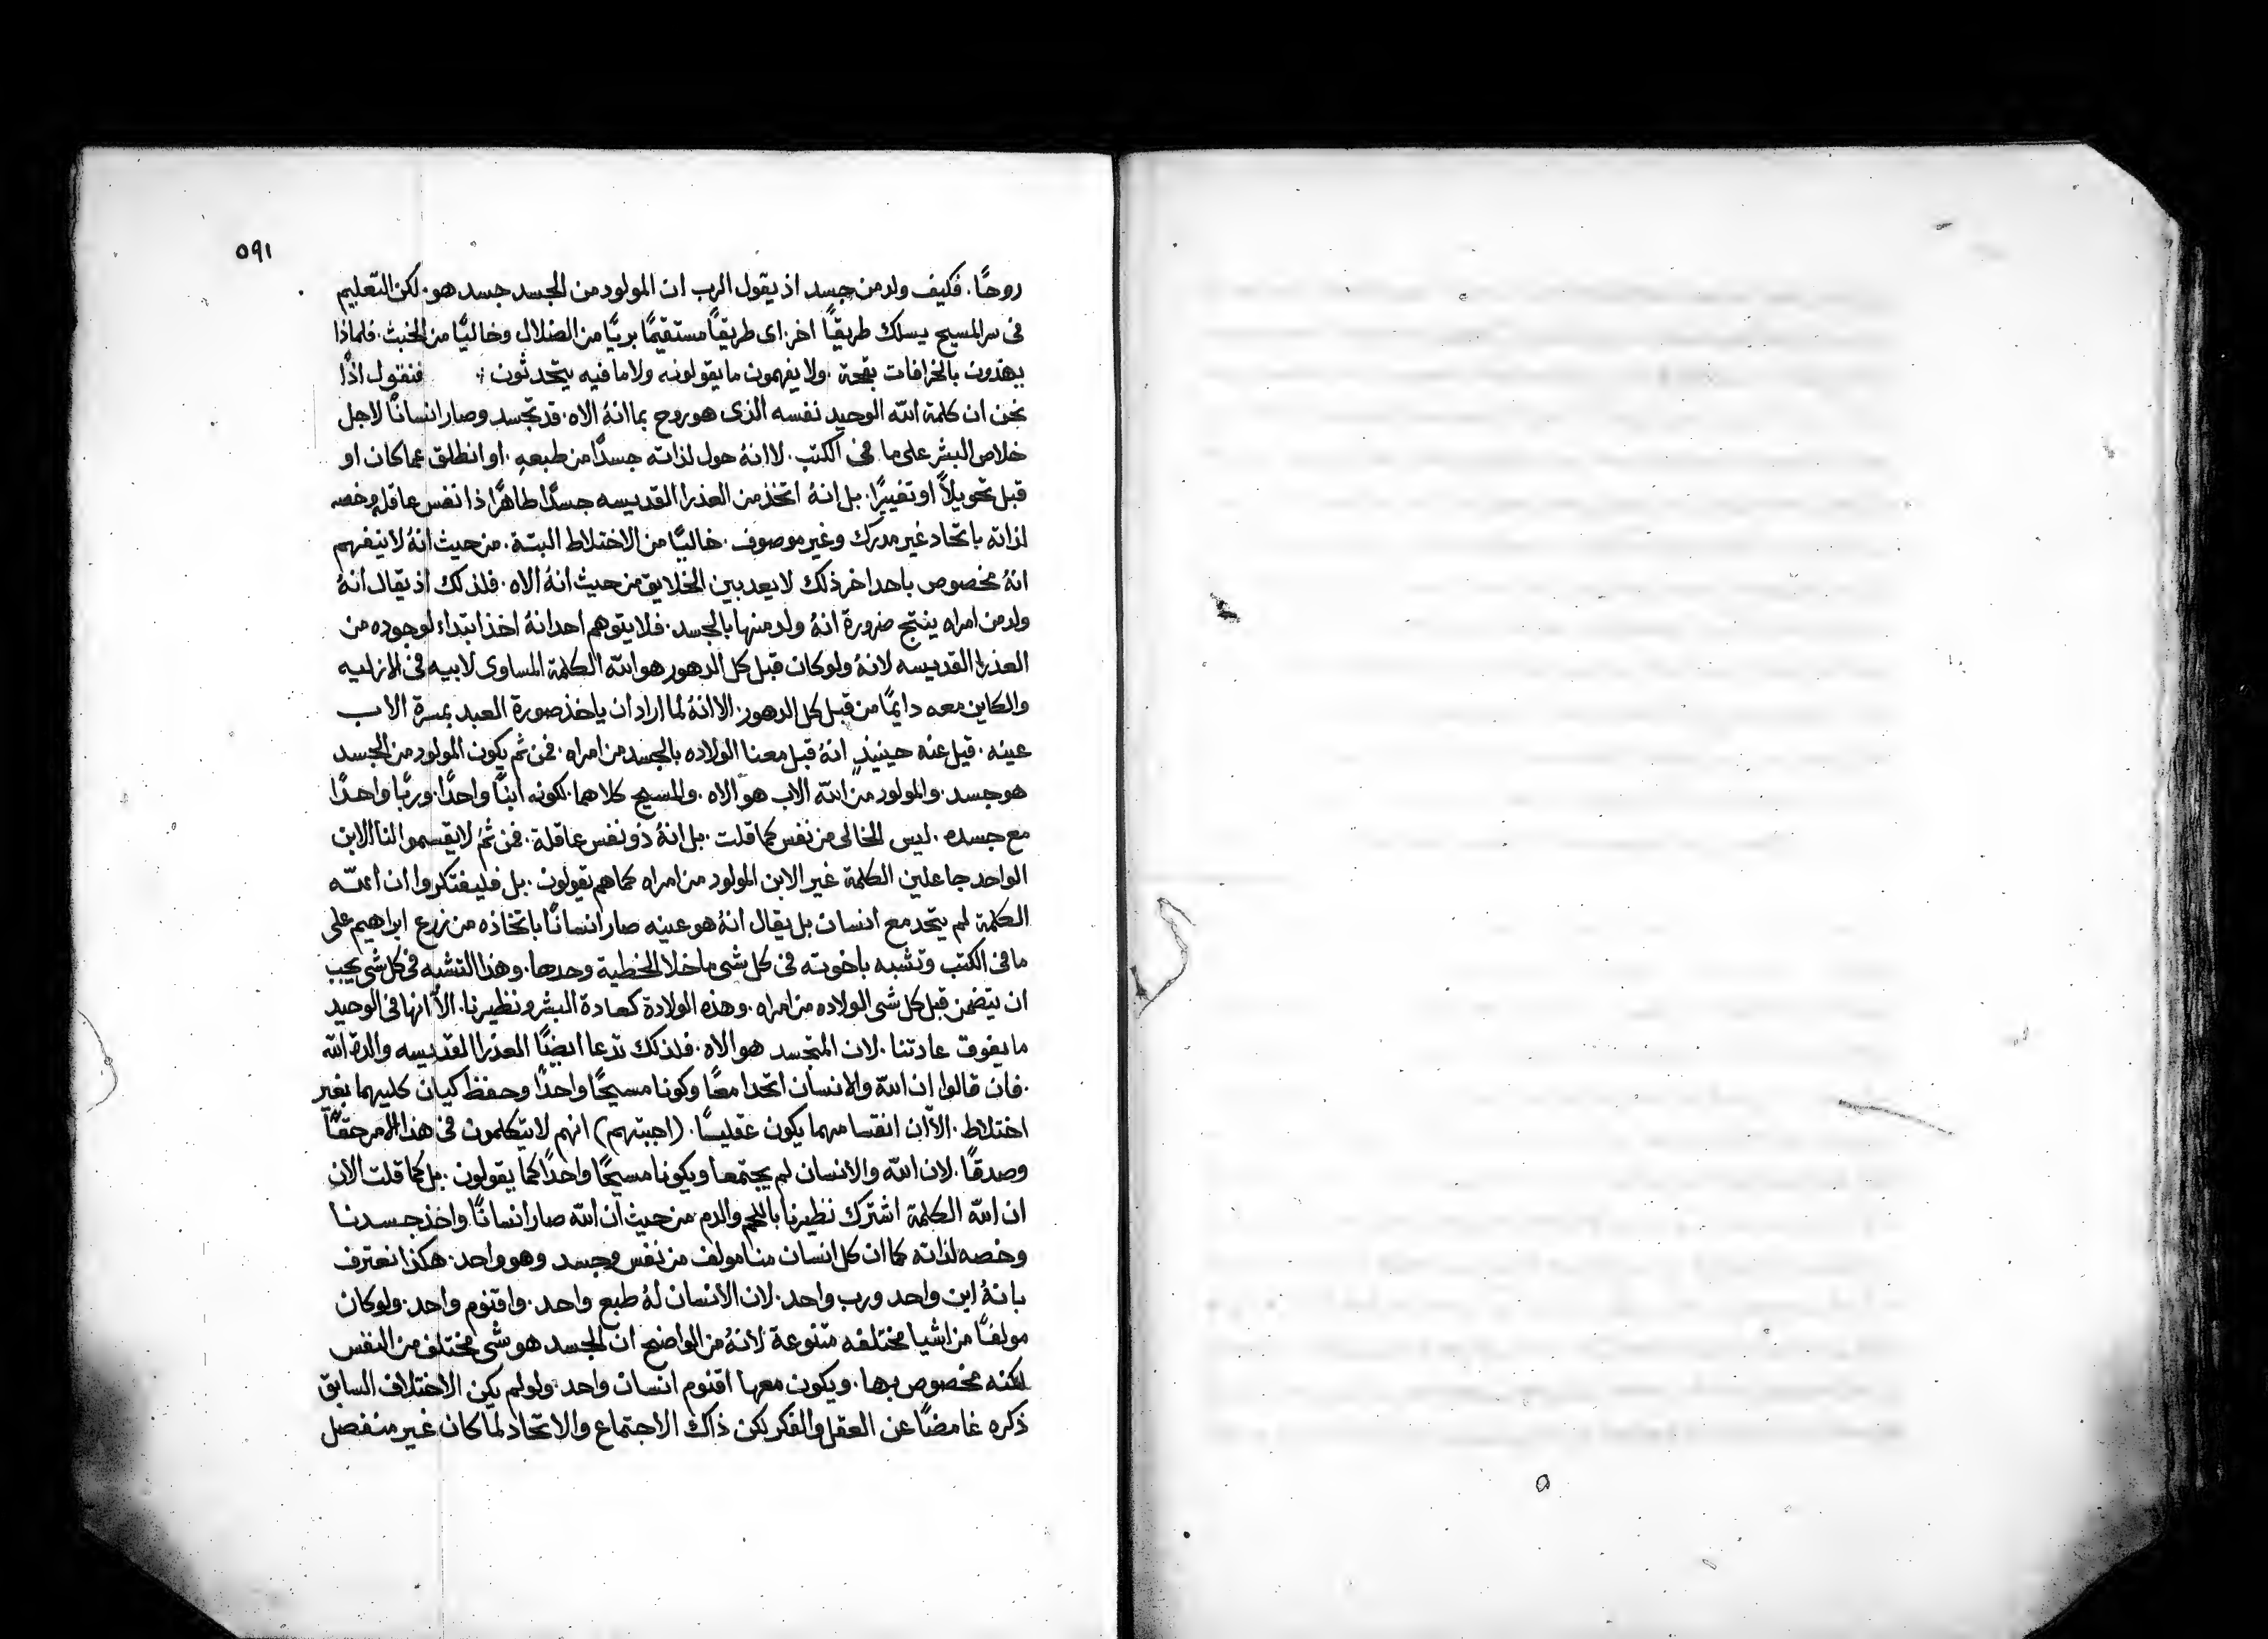 ٥٩١
روحًا. فكيف ولد من جسد اذ يقول الرب ان المولود من الجسد جسد هو. لكن التعليم
فى سر المسيح يسلك طريقًا اخر. اى طريقًا مستقيمًا بريًا من الضلال وخاليًا من الخبث. فلماذا
يهذون بالخرافات بقحة. ولا يفهمون ما يقولونه ولا ما فيه يتحدثون ⁘ فنقول اذًا
نحن ان كلمة الله الوحيد نفسه الذى هو روح بما انهُ الاه. قد تجسد وصار انسانًا لاجل
خلاص البشر على ما فى الكتب. لا انهُ حول لذاته جسدًا من طبعه. او انطلق عما كان او
قبل تحويلاً او تغييرًا. بل انهُ اتخذ من العذرا القديسه جسدًا طاهرًا ذا نفس عاقله وخصه
لذاته باتحاد غير مدرك وغير موصوف. خاليًا من الاختلاط البتة. من حيث انهُ لا ينفهم
انهُ مخصوص باحد اخر ذلك لا يعد بين الخلايق من حيث انهُ الاه. فلذلك اذ يقال انهُ
ولد من امراه ينتج ضرورة انهُ ولد منها بالجسد. فلا يتوهم احد انهُ اخذ ابتداء لوجوده من
العذرا القديسه لانهُ ولو كان قبل كل الدهور هو الله الكلمة المساوى لابيه فى الازليه
والكاين معه دايمًا من قبل كل الدهور. الا انهُ لما اراد ان ياخذ صورة العبد بمسرة الاب
عينه. قيل عنه حينيذٍ انهُ قبل معنا الولاده بالجسد من امراه. فمن ثم يكون المولود من الجسد
هو جسد. والمولود من الله الاب هو الاه. والمسيح كلاهما. لكونه ابنًا واحدًا. وربًا واحدًا
مع جسده. ليس الخالى من نفس كما قلت. بل انهُ ذو نفس عاقلة. فمن ثمَ لا يقسموا لنا الابن
الواحد جاعلين الكلمة غير الابن المولود من امراه كما هم يقولون. بل فليفتكروا ان الله
الكلمة لم يتحد مع انسان بل يقال انهُ هو عينه صار انسانًا باتخاذه من زرع ابراهيم على
ما فى الكتب وتشبه باخوته فى كل شى ما خلا الخطية وحدها. وهذا التشبه فى كل شى يجب
ان يتضمن قبل كل شى الولاده من امراه. وهذه الولادة كعادة البشر ونظيرنا. الاّ انها فى الوحيد
ما يفوق عادتنا. لان المتجسد هو الاه. فلذلك تدعا ايضًا العذرا القديسه والدة الله
. فان قالوا ان الله والانسان اتحدا معًا وكونا مسيحًا واحدًا وحفظ كيان كليهما بغير
اختلاط. الاّ ان انقسامهما يكون عقليًا. (اجبتهم) انهم لا يتكلمون فى هذا الامر حقًا
وصدقًا. لان الله والانسان لم يجتمعا ويكونا مسيحًا واحدًا كما يقولون. بل كما قلت الان
ان الله الكلمة اشترك نظيرنا باللحم والدم من حيث ان الله صار انسانًا واخذ جسدنا
وخصه لذاته كما ان كل انسان منا مولف من نفس وجسد وهو واحد. هكذا نعترف
بانهُ ابن واحد ورب واحد. لان الانسان لهُ طبع واحد. واقنوم واحد. ولو كان
مولفًا من اشيا مختلفه متنوعة لانهُ من الواضح ان الجسد هو شى مختلف من النفس
لكنه مخصوص بها. ويكون معها اقنوم انسان واحد. ولو لم يكن الاختلاف السابق
ذكره غامضًا عن العقل والفكر لكن ذاك الاجتماع والاتحاد لما كان غير منفصل